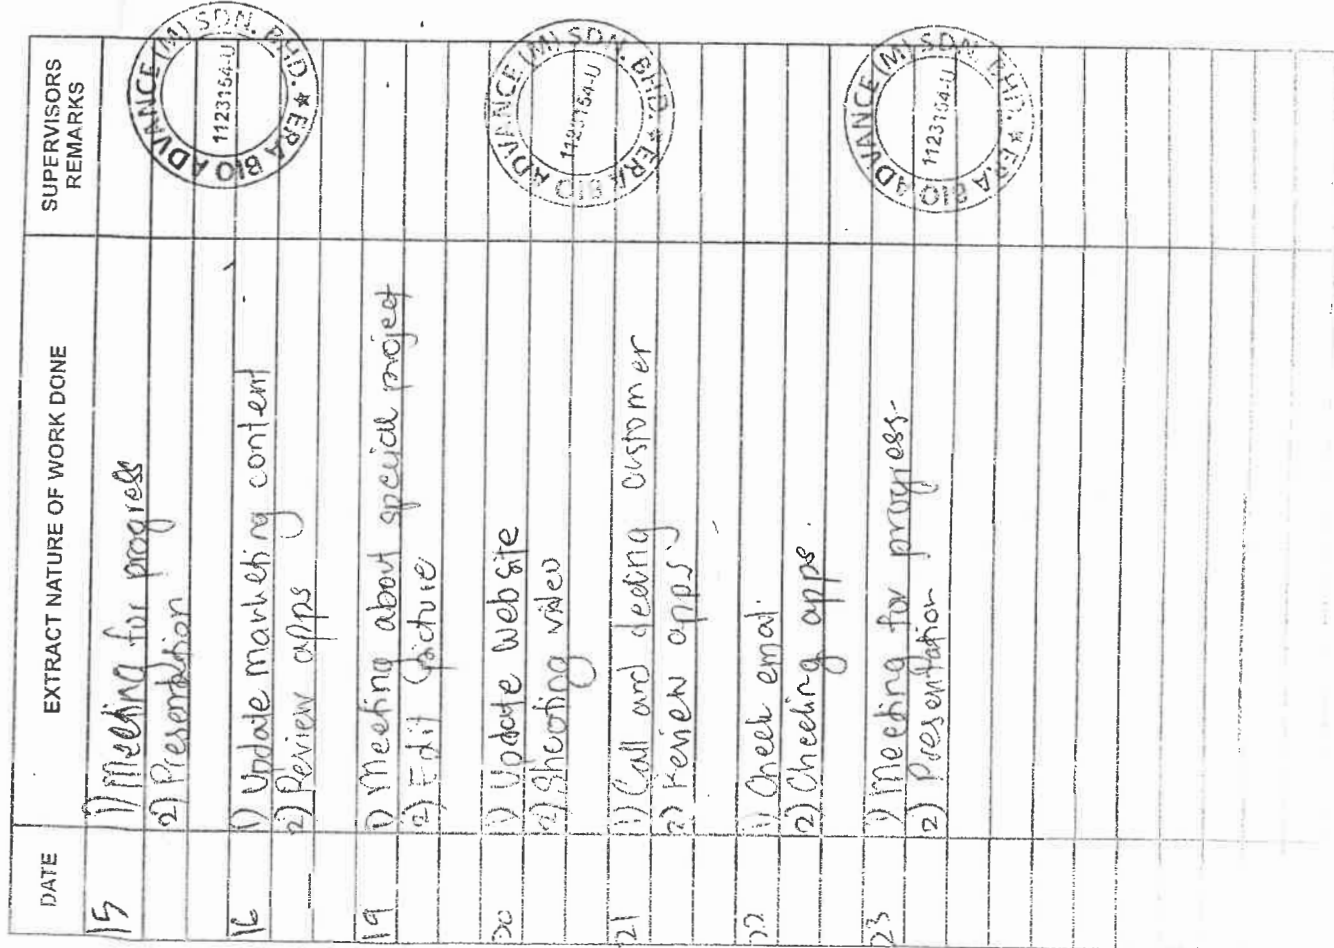 DATE
EXTRACT NATURE OF WORK DONE
SUPERVISORS
REMARKS
15
1) Meeting for progress
2) Presentation
ERA BIO ADVANCE (M) SDN. BHD. ★
1123154-U
16
1) Update marketing content
2) Review apps
19
1) Meeting about special project
2) Edit picture
20
1) Update website
2) Shooting video
ERA BIO ADVANCE (M) SDN. BHD. ★
1123154-U
21
1) Call and deding customer
2) Review apps.
22
1) Check email.
2) Checking apps.
23
1) Meeting for progress.
2) Presentation
ERA BIO ADVANCE (M) SDN. BHD. ★
1123154-U